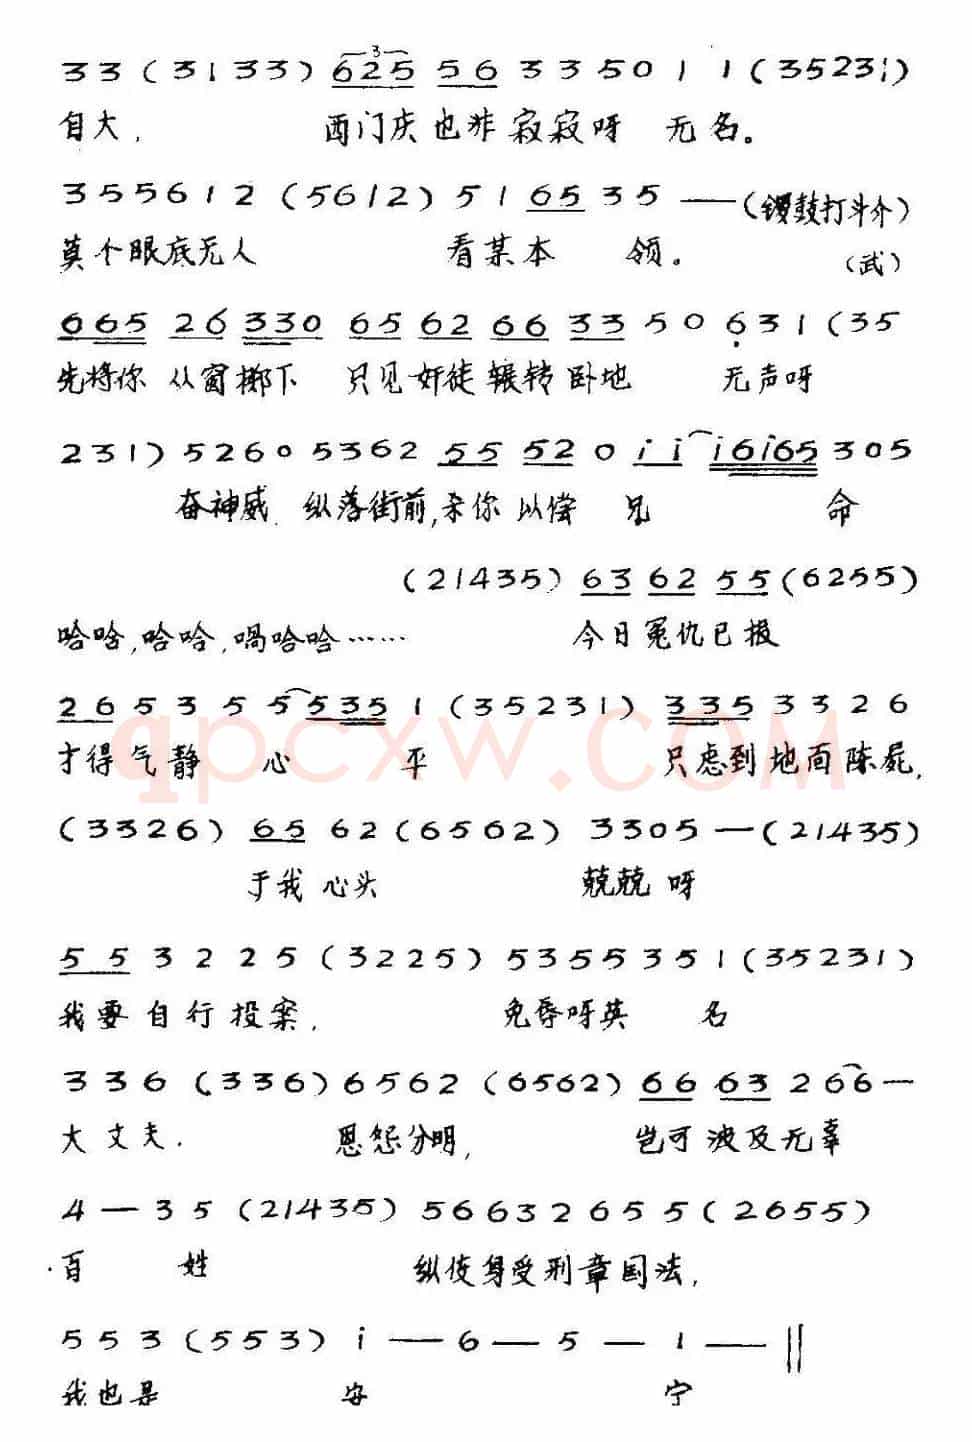 3 3 ( 3 1 3 3 ) 6 2 5 5 6 3 3 5 0 1 1 ( 3 5 2 3 1 )
自大, 西门庆也非寂寂呀 无名。
3 5 5 6 1 2 ( 5 6 1 2 ) 5 1 6 5 3 5 —— (锣鼓打斗介)
莫个眼底无人 看某本 领。 (武)
6 6 5 2 6 3 3 0 6 5 6 2 6 6 3 3 5 0 6 3 1 ( 3 5
先将你 从窗掷下 只见奸徒 辗转卧地 无声呀
2 3 1 ) 5 2 6 0 5 3 6 2 5 5 5 2 0 i i i 6 i 6 5 3 0 5
奋神威 纵落街前,杀你 以偿 兄 命
( 2 1 4 3 5 ) 6 3 6 2 5 5 ( 6 2 5 5 )
哈哈,哈哈,嗬哈哈…… 今日冤仇已报
2 6 5 3 5 5 5 3 5 1 ( 3 5 2 3 1 ) 3 3 5 3 3 2 6
才得气静 心 平 只虑到地面陈屍,
qpcxw.COM
( 3 3 2 6 ) 6 5 6 2 ( 6 5 6 2 ) 3 3 0 5 — ( 2 1 4 3 5 )
于我心头 兢兢呀
5 5 3 2 2 5 ( 3 2 2 5 ) 5 3 5 5 3 5 1 ( 3 5 2 3 1 )
我要自行投案, 免辱呀英 名
3 3 6 ( 3 3 6 ) 6 5 6 2 ( 6 5 6 2 ) 6 6 6 3 2 6 6 —
大丈夫. 恩怨分明, 岂可波及无辜
4 — 3 5 ( 2 1 4 3 5 ) 5 6 6 3 2 6 5 5 ( 2 6 5 5 )
百 姓 纵使身受刑章国法,
5 5 3 ( 5 5 3 ) i —— 6 — 5 — 1 —— ‖
我也是 安 宁